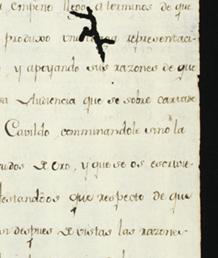 empeno llego a terminos de que
produxo una representaci
y apoyando sus razones de que
Audiencia que se sobre cartase
Cavildo, comminandole sino la
de Oro, y que se os escrivie
respecto de que
despues de vistas las razones